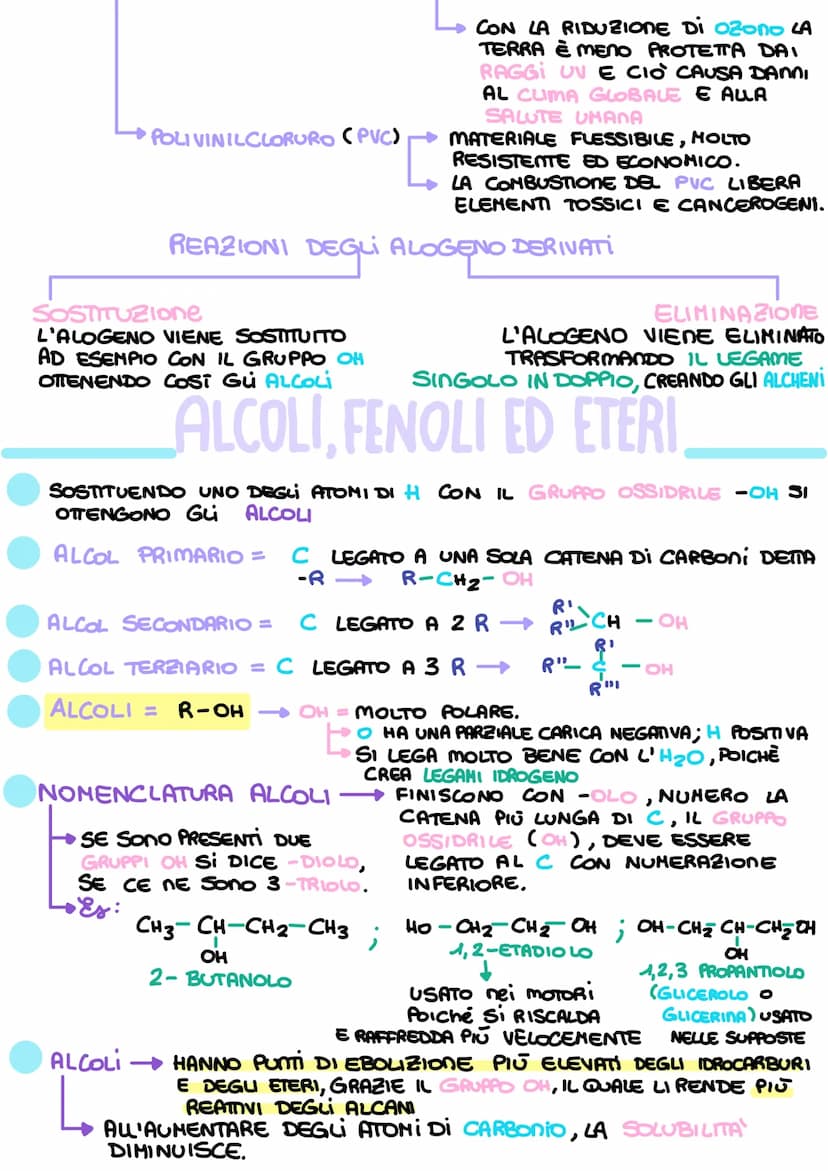 CON LA RIDUZIONE DI OZONO LA
TERRA È MENO PROTETTA DAI
RAGGI UV E CIÒ CAUSA DANNI
AL CLIMA GLOBALE E ALLA
SALUTE UMANA
POLIVINILCLORURO (PVC)
MATERIALE FLESSIBILE, MOLTO
RESISTENTE ED ECONOMICO.
LA COMBUSTIONE DEL PVC LIBERA
ELEMENTI TOSSICI E CANCEROGENI.
REAZIONI DEGLI ALOGENO DERIVATI
SOSTITUZIONE
L'ALOGENO VIENE SOSTITUITO
AD ESEMPIO CON IL GRUPPO OH
OTTENENDO COSÌ GLI ALCOLI
ELIMINAZIONE
L'ALOGENO VIENE ELIMINATO
TRASFORMANDO IL LEGAME
SINGOLO IN DOPPIO, CREANDO GLI ALCHENI
ALCOLI, FENOLI ED ETERI
SOSTITUENDO UNO DEGLI ATOMI DI H CON IL GRUPPO OSSIDRILE -OH SI
OTTENGONO GLI ALCOLI
ALCOL PRIMARIO = C LEGATO A UNA SOLA CATENA DI CARBONI DETTA
-R → R-CH2-OH
ALCOL SECONDARIO = C LEGATO A 2 R → R' R'' CH - OH
ALCOL TERZIARIO = C LEGATO A 3 R → R''- C - OH
R'
R'''
ALCOLI = R-OH → OH = MOLTO POLARE.
O HA UNA PARZIALE CARICA NEGATIVA; H POSITIVA
SI LEGA MOLTO BENE CON L'H2O, POICHÈ
CREA LEGAMI IDROGENO
NOMENCLATURA ALCOLI → FINISCONO CON -OLO, NUMERO LA
CATENA PIÙ LUNGA DI C, IL GRUPPO
OSSIDRILE (OH), DEVE ESSERE
LEGATO AL C CON NUMERAZIONE
INFERIORE.
SE SONO PRESENTI DUE
GRUPPI OH SI DICE -DIOLO,
SE CE NE SONO 3 -TRIOLO.
Es:
CH3-CH-CH2-CH3 ; HO-CH2-CH2-OH ; OH-CH2-CH-CH2-OH
OH
2-BUTANOLO
1,2-ETADIOLO
USATO NEI MOTORI
POICHÉ SI RISCALDA
E RAFFREDDA PIÙ VELOCEMENTE
OH
1,2,3 PROPANTIOLO
(GLICEROLO O
GLICERINA) USATO
NELLE SUPPOSTE
ALCOLI → HANNO PUNTI DI EBOLIZIONE PIÙ ELEVATI DEGLI IDROCARBURI
E DEGLI ETERI, GRAZIE IL GRUPPO OH, IL QUALE LI RENDE PIÙ
REATTIVI DEGLI ALCANI
ALL'AUMENTARE DEGLI ATOMI DI CARBONIO, LA SOLUBILITÀ
DIMINUISCE.